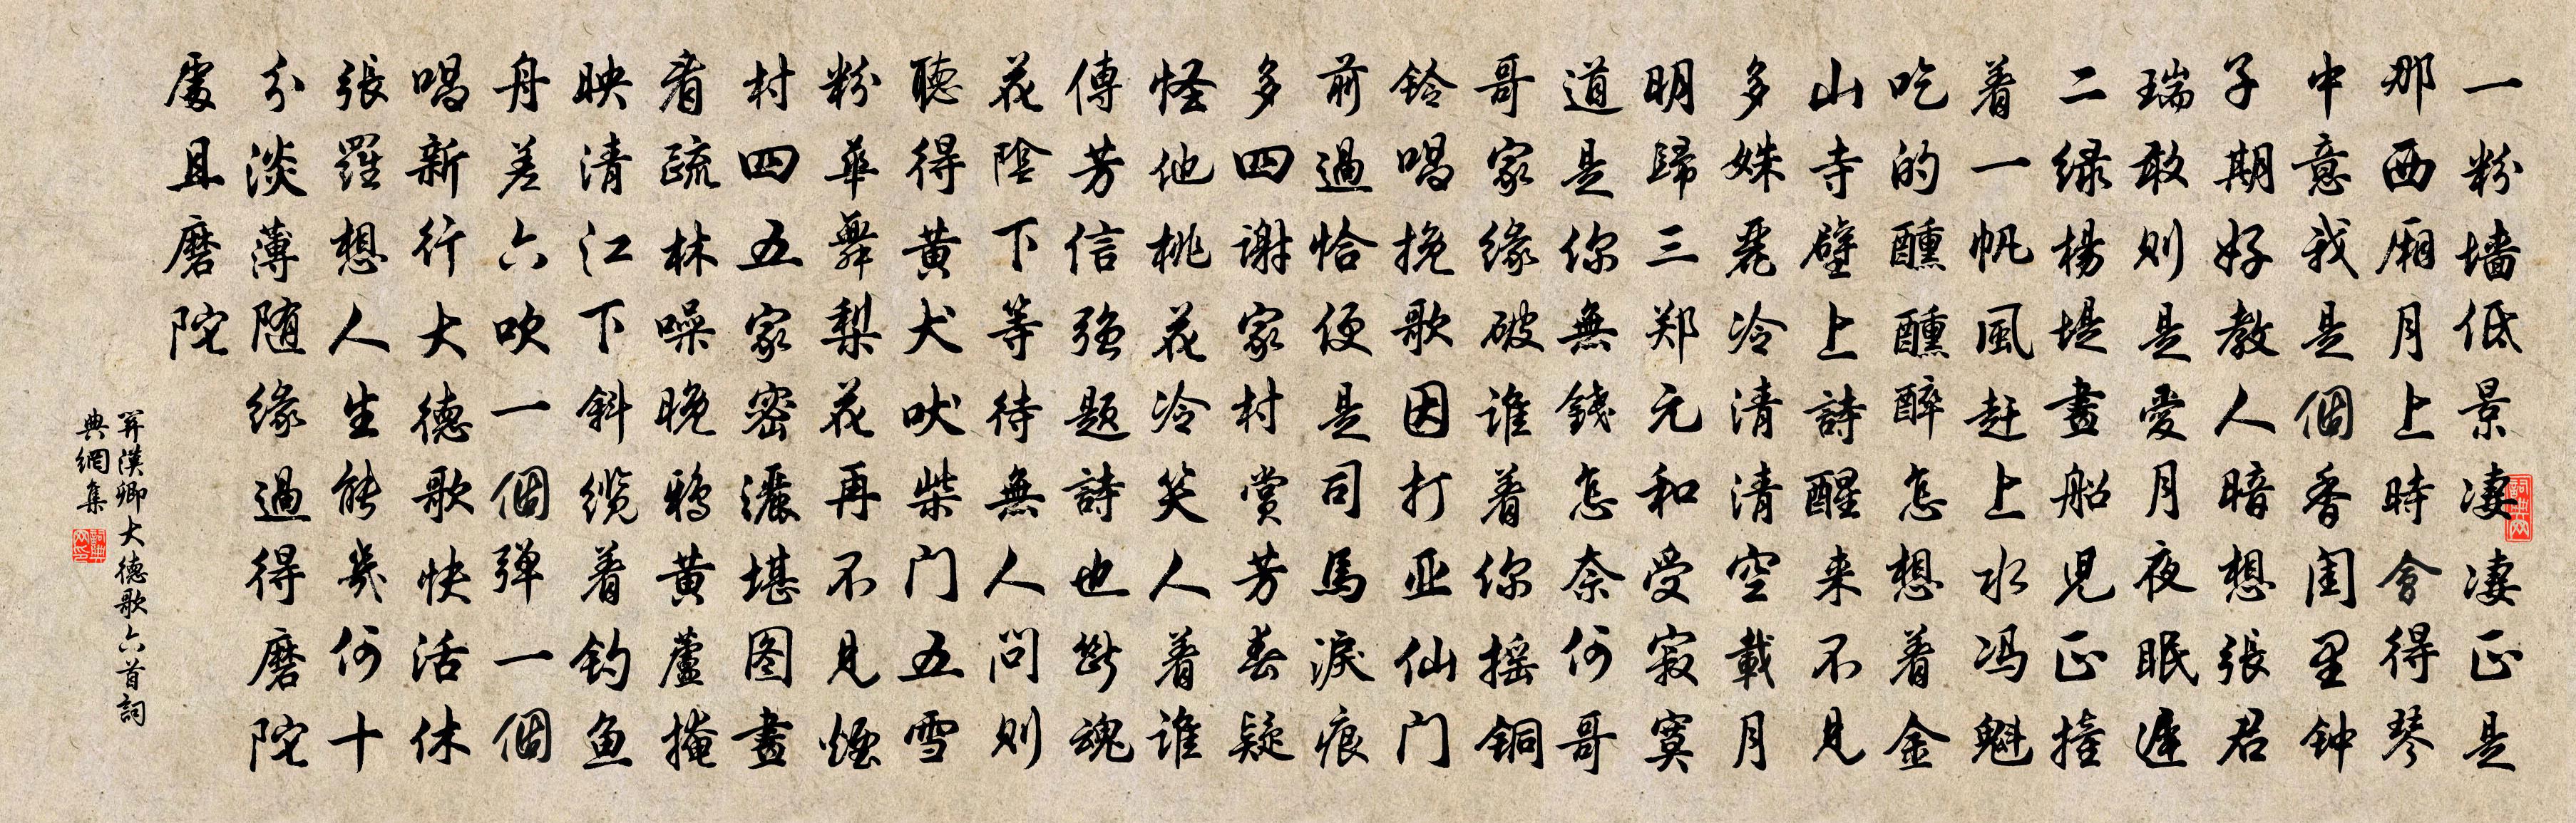 一粉墙低景凄凄正是
那西厢月上時會得琴
中意我是個香閨里钟
子期好教人暗想張君
瑞敢則是愛月夜眠遲
二緑楊堤畫船兒正撞
着一帆風赶上水冯魁
吃的醺醺醉怎想着金
山寺壁上詩醒来不見
多姝麗冷清清空載月
明歸三郑元和受寂寞
道是你無錢怎奈何哥
哥家緣破谁着你摇铜
铃唱挽歌因打亚仙门
前過恰便是司馬淚痕
多四谢家村赏芳春疑
怪他桃花冷笑人着谁
傳芳信强题詩也断魂
花陰下等待無人問則
聽得黄犬吠柴门五雪
粉華舞梨花再不見煙
村四五家密灑堪图畫
看疏林噪晚鸦黄蘆掩
映清江下斜缆着钓鱼
舟差六吹一個弹一個
唱新行大德歌快活休
張羅想人生能幾何十
分淡薄随緣過得磨陀
處且磨陀
关漢卿大德歌六首詞
典網集